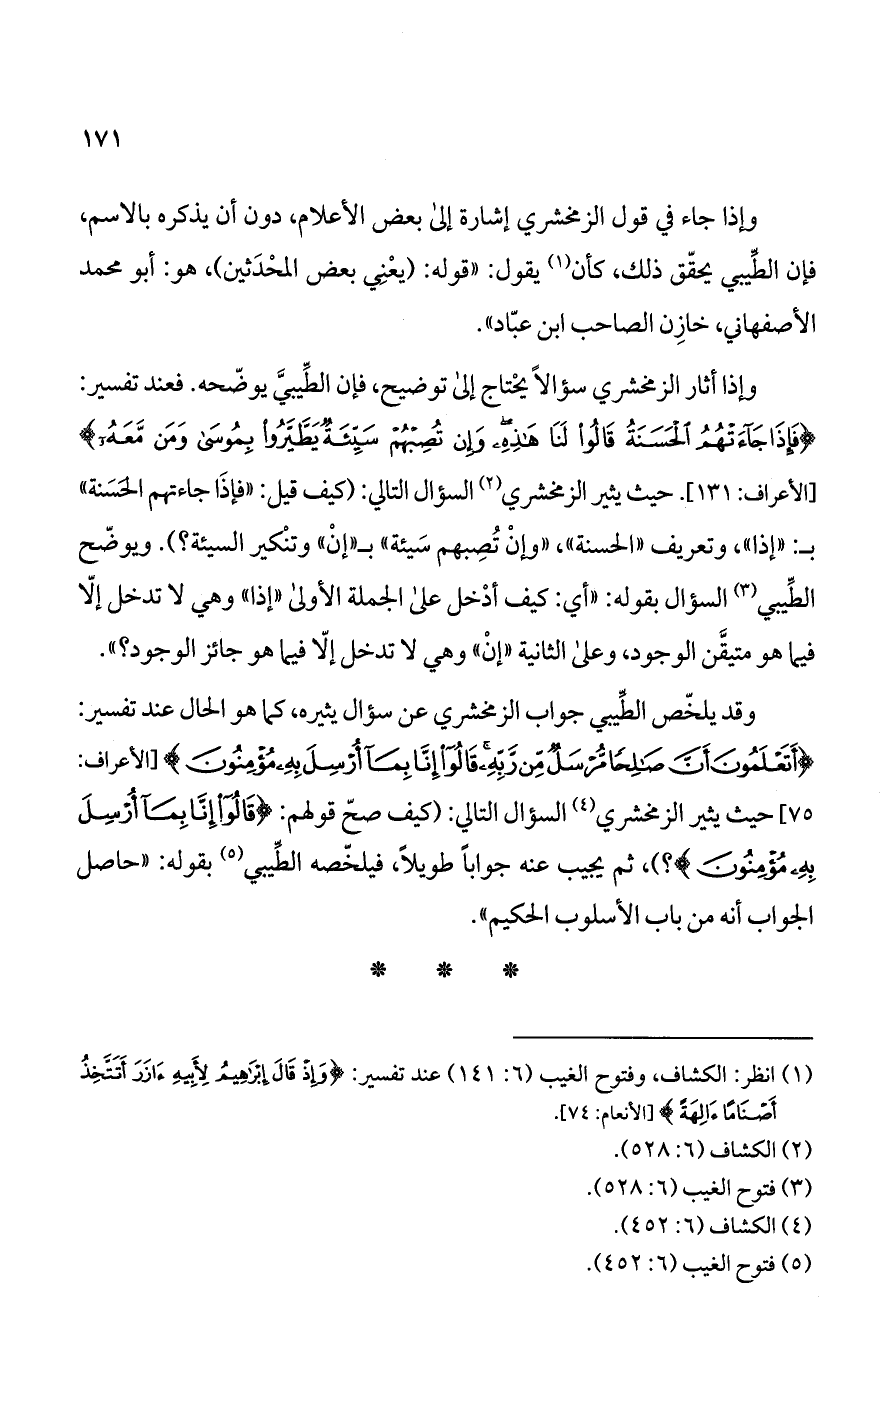 ١٧١
وإذا جاء في قول الزمخشري إشارة إلىٰ بعض الأعلام، دون أن يذكره بالاسم،
فإن الطِّيبي يحقّق ذلك، كأن(١) يقول: «قوله: (يعْنِي بعض المحْدَثين)، هو: أبو محمد
الأصفهاني، خازِن الصاحب ابن عبّاد».
وإذا أثار الزمخشري سؤالاً يحْتاج إلىٰ توضيح، فإن الطِّيبيَّ يوضّحه. فعند تفسير:
﴿فَإِذَا جَآءَتْهُمُ ٱلْحَسَنَةُ قَالُوا۟ لَنَا هَٰذِهِۦ ۖ وَإِن تُصِبْهُمْ سَيِّئَةٌ يَطَّيَّرُوا۟ بِمُوسَىٰ وَمَن مَّعَهُۥٓ﴾
[الأعراف: ١٣١]. حيث يثير الزمخشري(٢) السؤال التالي: (كيف قيل: «فإذَا جاءتهم الحَسَنة»
بـ: «إذا»، وتعريف «الحسنة»، «وإنْ تُصِبهم سَيئة» بـ«إنْ» وتنْكير السيئة؟). ويوضّح
الطِّيبي(٣) السؤال بقوله: «أي: كيف أدْخل علىٰ الجملة الأولىٰ «إذا» وهي لا تدخل إلّا
فيما هو متيقَّن الوجود، وعلىٰ الثانية «إنْ» وهي لا تدخل إلّا فيما هو جائز الوجود؟».
وقد يلخّص الطِّيبي جواب الزمخشري عن سؤال يثيره، كما هو الحال عند تفسير:
﴿أَتَعْلَمُونَ أَنَّ صَٰلِحًا مُّرْسَلٌ مِّن رَّبِّهِۦ ۚ قَالُوٓا۟ إِنَّا بِمَآ أُرْسِلَ بِهِۦ مُؤْمِنُونَ﴾ [الأعراف:
٧٥] حيث يثير الزمخشري(٤) السؤال التالي: (كيف صحّ قولهم: ﴿قَالُوٓا۟ إِنَّا بِمَآ أُرْسِلَ
بِهِۦ مُؤْمِنُونَ﴾؟)، ثم يجيب عنه جواباً طويلاً، فيلخّصه الطِّيبي(٥) بقوله: «حاصل
الجواب أنه من باب الأسلوب الحكيم».
* * *
(١) انظر: الكشاف، وفتوح الغيب (٦: ١٤١) عند تفسير: ﴿وَإِذْ قَالَ إِبْرَٰهِيمُ لِأَبِيهِ ءَازَرَ أَتَتَّخِذُ
أَصْنَامًا ءَالِهَةً﴾ [الأنعام: ٧٤].
(٢) الكشاف (٦: ٥٢٨).
(٣) فتوح الغيب (٦: ٥٢٨).
(٤) الكشاف (٦: ٤٥٢).
(٥) فتوح الغيب (٦: ٤٥٢).